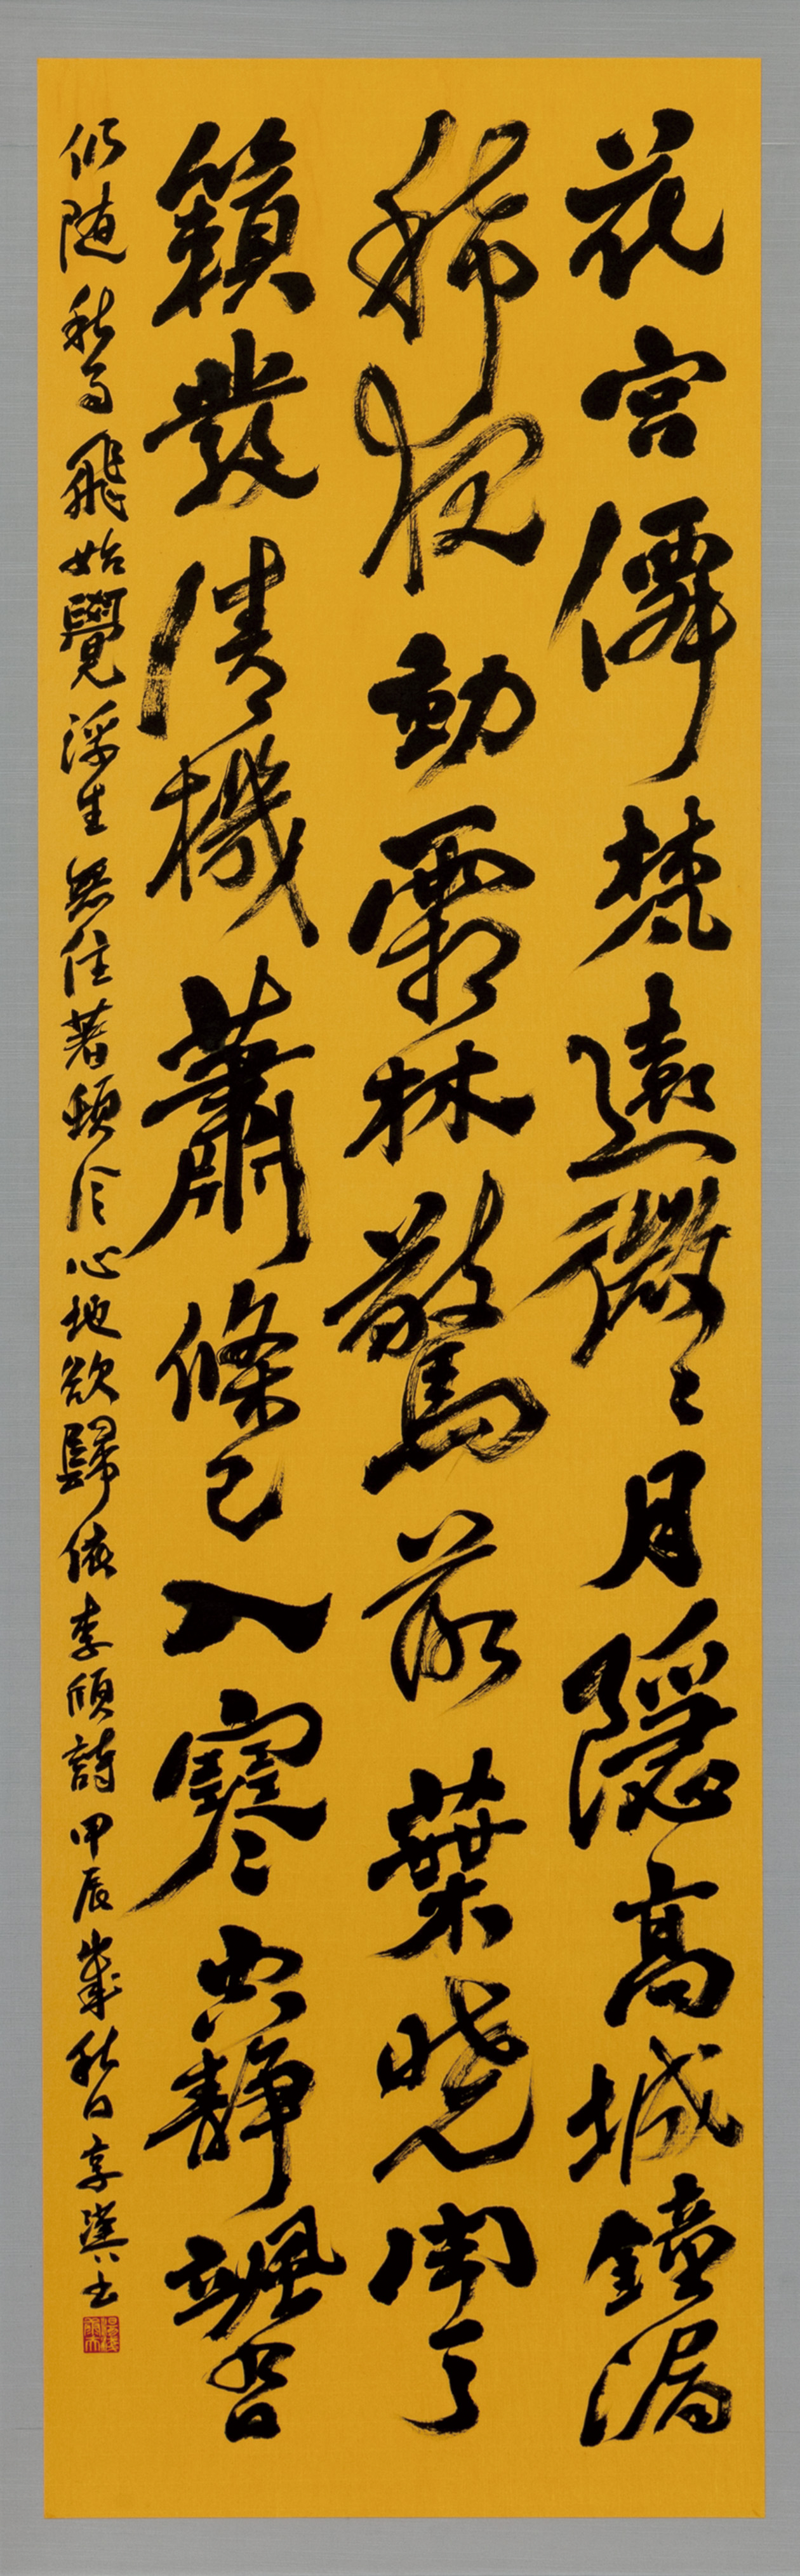 花宮僊梵遠微〻月隱高城鐘漏
稀夜動霜林驚落葉曉聞天
籟發清機蕭條已入寒空靜颯沓
仍隨秋雨飛始覺浮生無住著頓令心地欲歸依李頎詩甲辰歲秋日享漢書